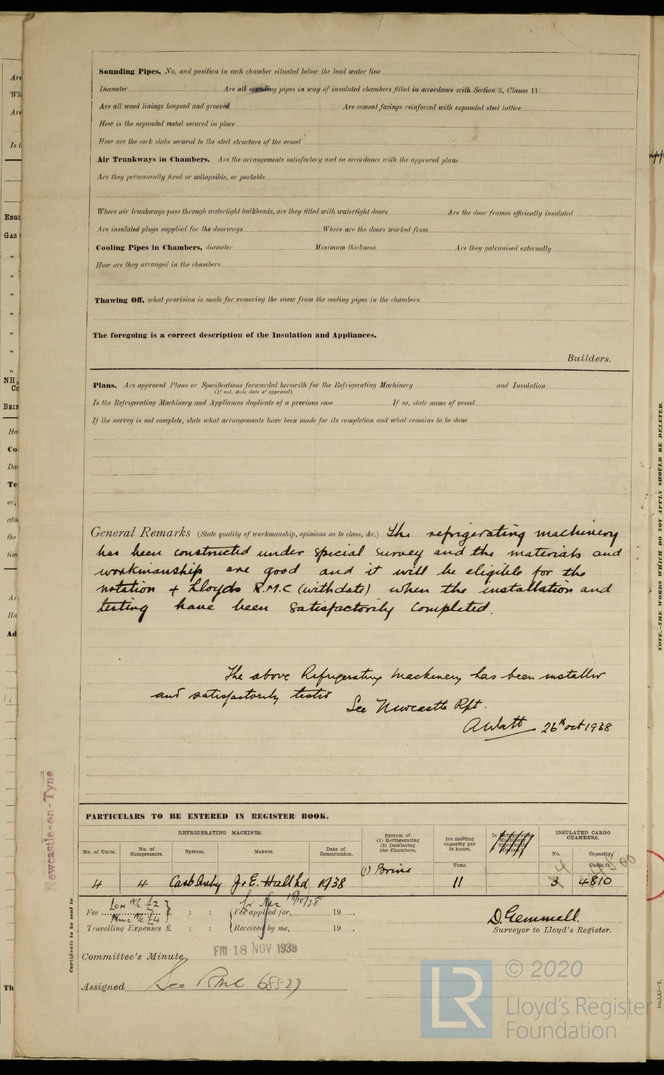 Sounding Pipes, No. and position in each chamber situated below the load water line
Diameter Are all sounding pipes in way of insulated chambers fitted in accordance with Section 3, Clause 11
Are all wood linings tongued and grooved Are cement facings reinforced with expanded steel lattice
How is the expanded metal secured in place
How are the cork slabs secured to the steel structure of the vessel
Air Trunkways in Chambers. Are the arrangements satisfactory and in accordance with the approved plans
Are they permanently fixed or collapsible, or portable
Where air trunkways pass through watertight bulkheads, are they fitted with watertight doors Are the door frames efficiently insulated
Are insulated plugs supplied for the doorways Where are the doors worked from
Cooling Pipes in Chambers, diameter Minimum thickness Are they galvanised externally
How are they arranged in the chambers
Thawing Off, what provision is made for removing the snow from the cooling pipes in the chambers
The foregoing is a correct description of the Insulation and Appliances.
Builders.
Plans. Are approved Plans or Specifications forwarded herewith for the Refrigerating Machinery and Insulation
(If not, state date of approval)
Is the Refrigerating Machinery and Appliances duplicate of a previous case If so, state name of vessel
If the survey is not complete, state what arrangements have been made for its completion and what remains to be done
General Remarks (State quality of workmanship, opinions as to class, &c.) The refrigerating machinery
has been constructed under special survey and the materials and
workmanship are good and it will be eligible for the
notation + Lloyds R.M.C (with date) when the installation and
testing have been satisfactorily completed.
The above Refrigerating Machinery has been installed
and satisfactorily tested
See Newcastle Rpt.
A Watt 26th Oct 1938
Newcastle-on-Tyne
PARTICULARS TO BE ENTERED IN REGISTER BOOK.
REFRIGERATING MACHINES.
No. of Units. No. of Compressors. System. Makers. Date of Construction.
System of (1) Refrigerating (2) Insulating the Chambers.
Ice melting capacity per 24 hours.
Tons.
INSULATED CARGO CHAMBERS.
No. Capacity.
Cubic ft.
(1) Brine
4 4 Carb Anhy J. & E. Hall Ltd 10/38 11 3 4810
Fee Lon 19/11/38
Fee applied for, 19 .
Travelling Expenses £ : : Received by me, 19 .
D. Gemmell.
Surveyor to Lloyd's Register.
Certificate to be sent to
Committee's Minute FRI 18 NOV 1938
Assigned See Rmc 68827
NOTE.—THE WORDS WHICH DO NOT APPLY SHOULD BE DELETED.
LR
© 2020
Lloyd's Register
Foundation